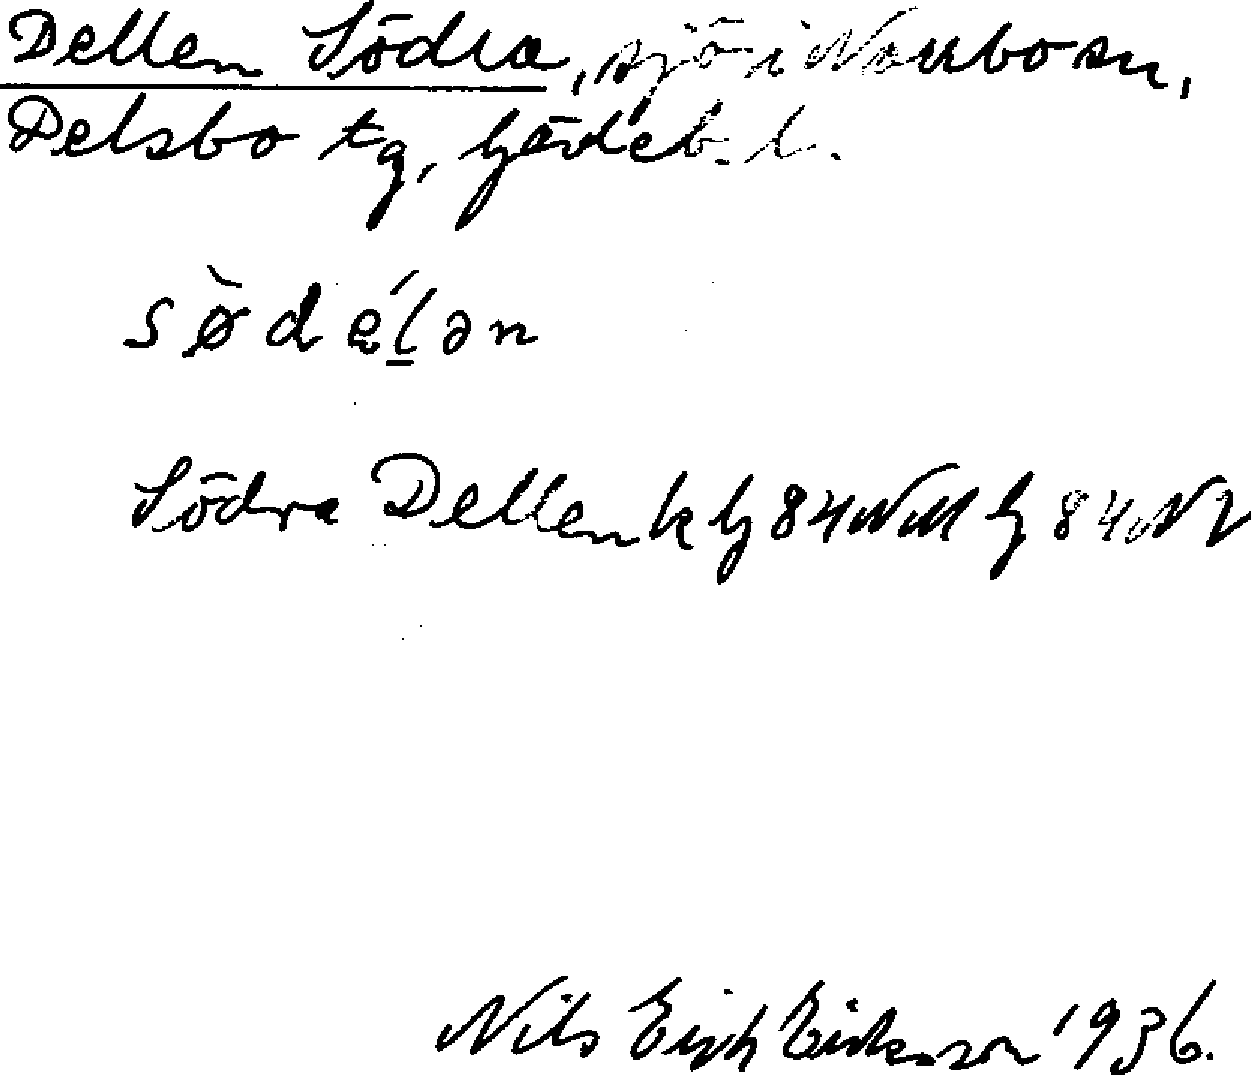 Dellen Södra, sjö i Norrbo sn,
Delsbo tg, Gävleb. l.
Södra Dellen k G 84 NV
Nils Erik Eriksson 1936.